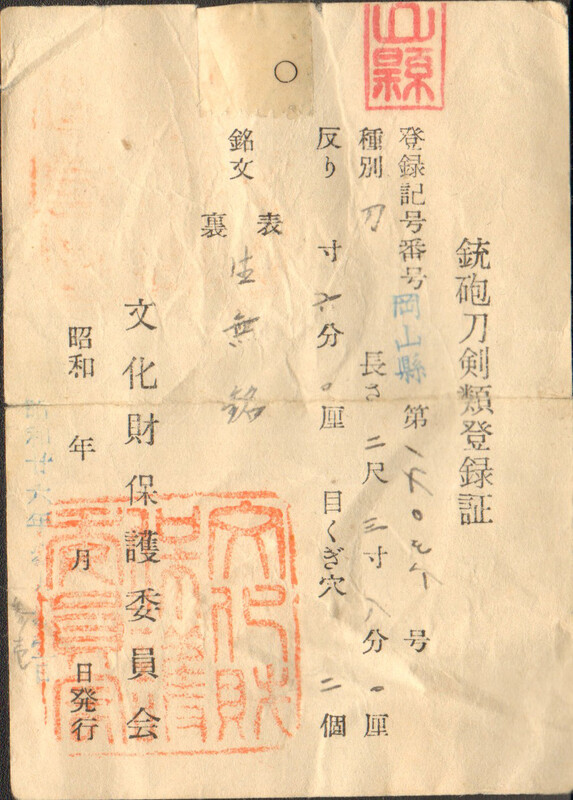 銃砲刀剣類登録証
登録記号番号 岡山縣 第 号
種別 刀 長さ 二尺 三寸 八分 〇厘
反り 寸 六分 〇厘 目くぎ穴 二個
銘文 表 生無銘
裏
文化財保護委員会
昭和 年 月 日発行
昭和廿六年
文化財保護委員会
山縣